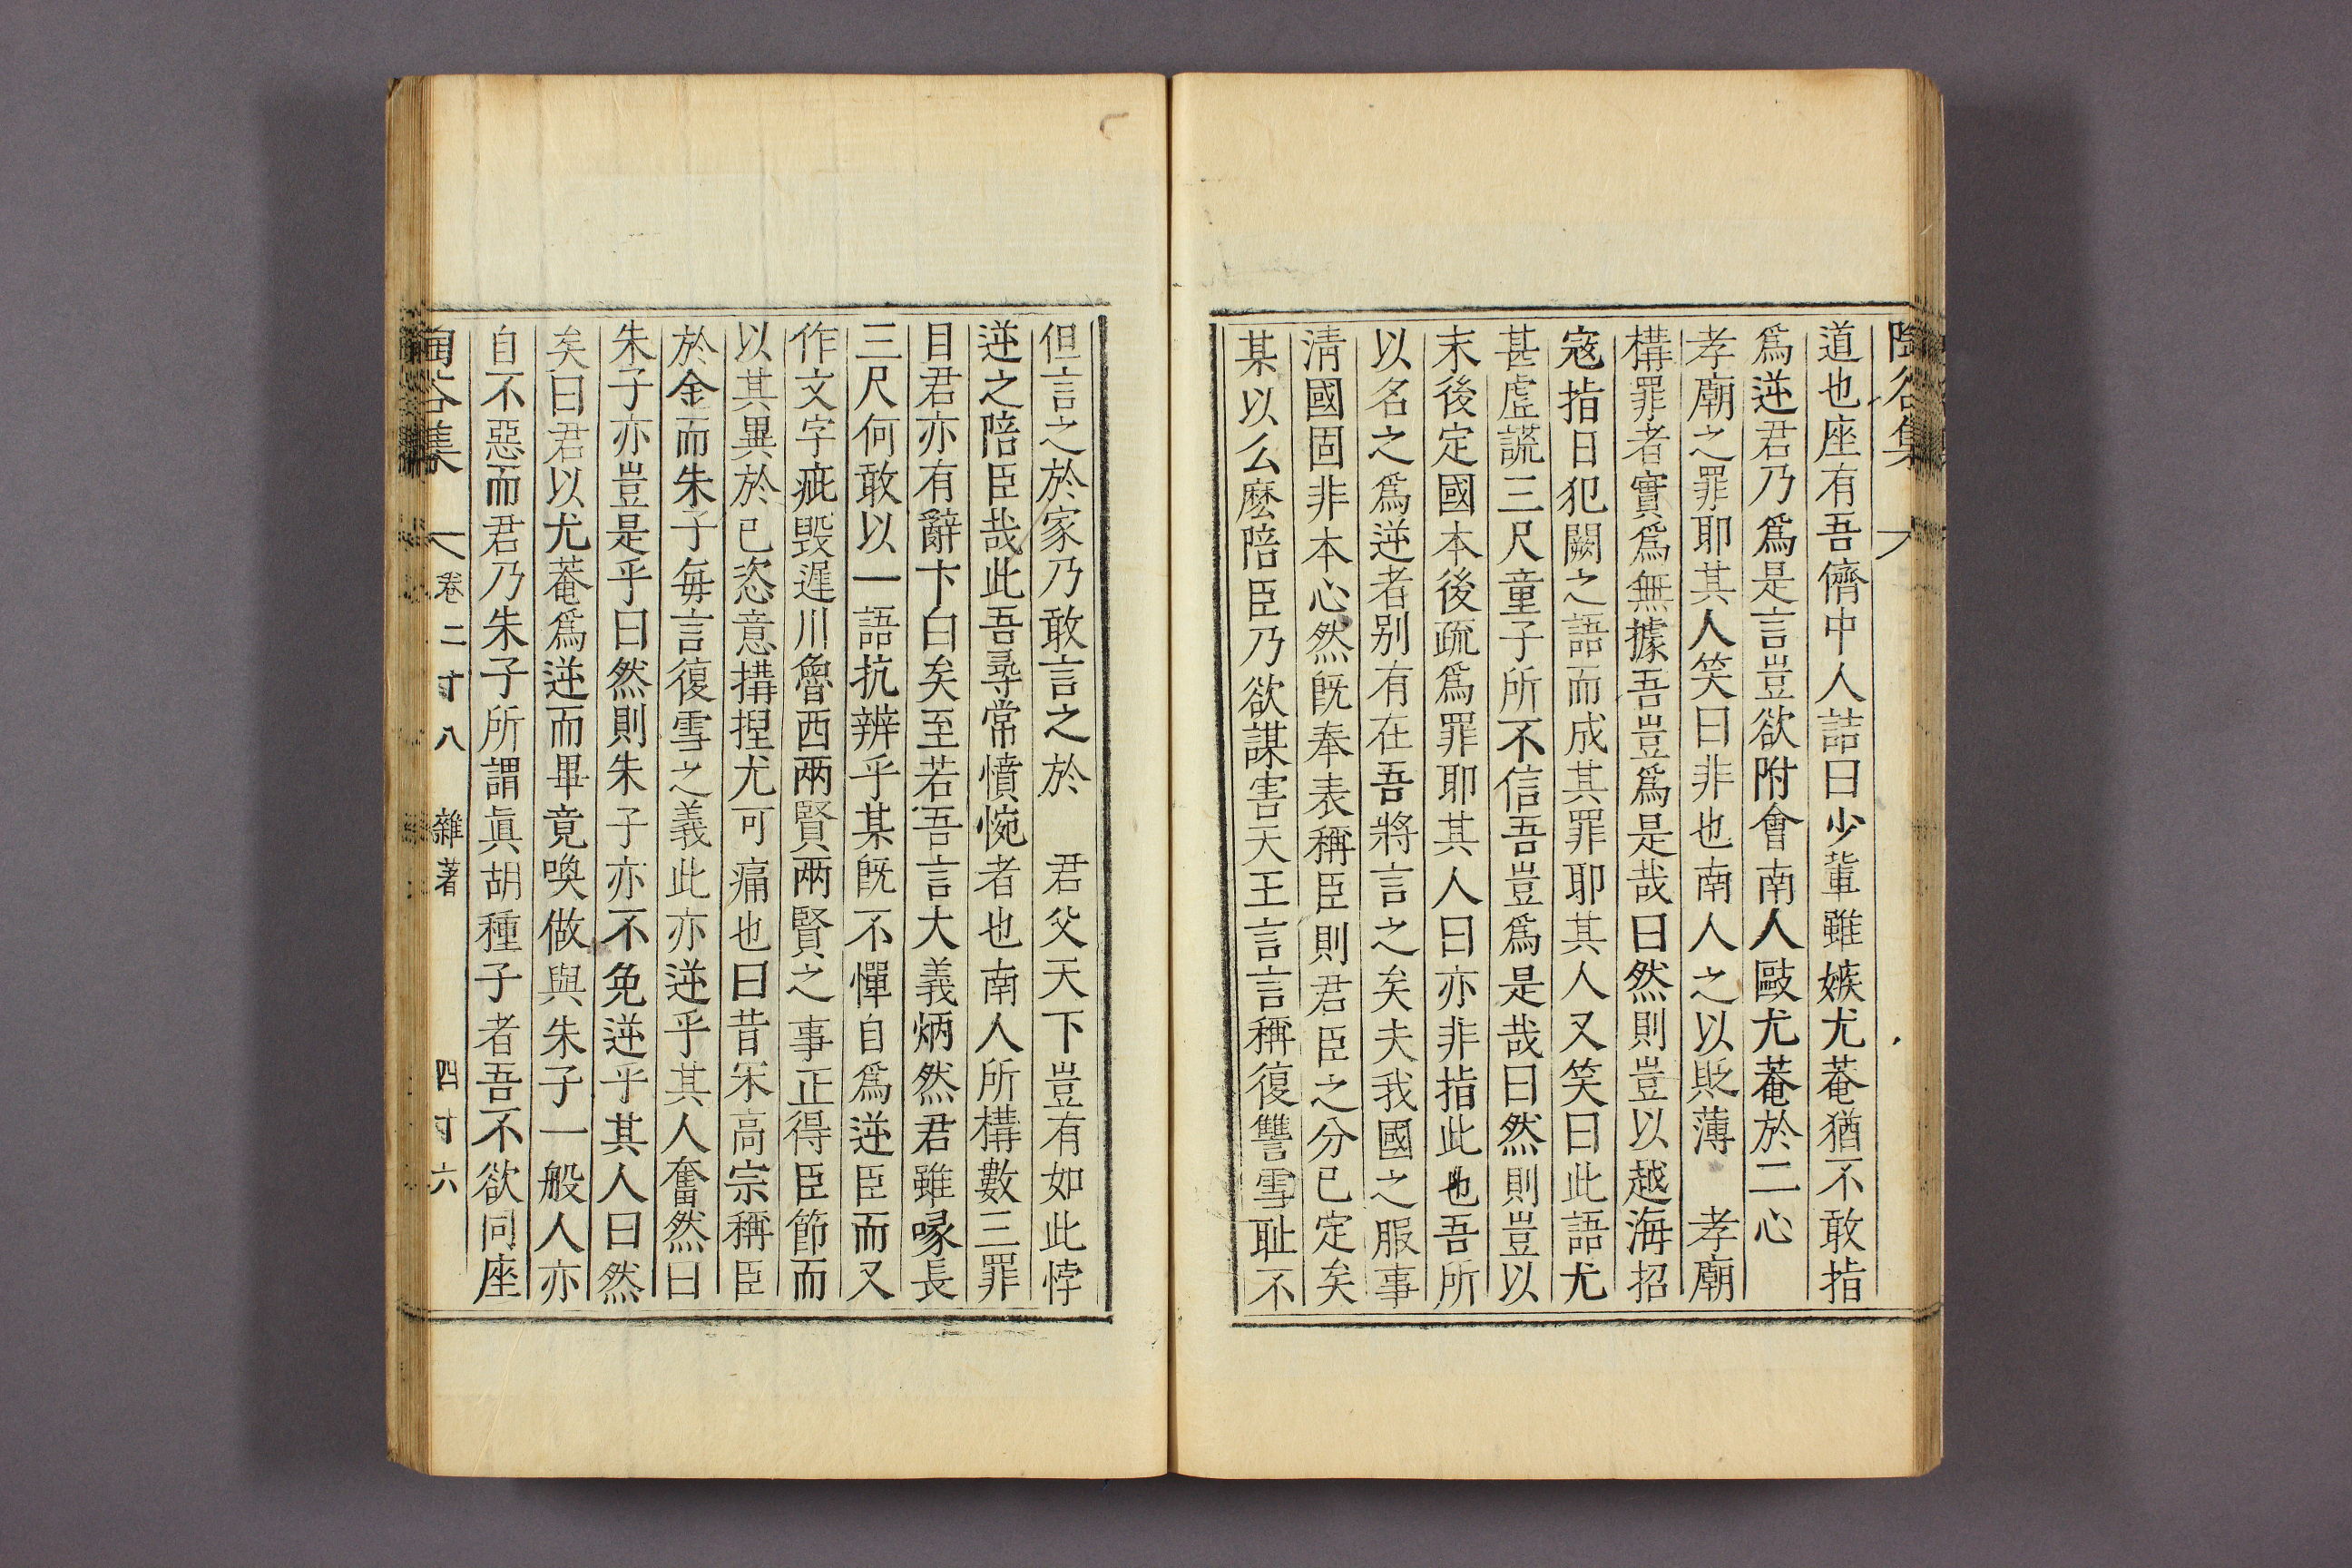 陶谷集
道也座有吾儕中人詰曰少輩雖嫉尤菴猶不敢指
爲逆君乃爲是言豈欲附會南人敺尤菴於二心
孝廟之罪耶其人笑曰非也南人之以貶薄　孝廟
構罪者實爲無據吾豈爲是哉曰然則豈以越海招
寇指日犯闕之語而成其罪耶其人又笑曰此語尤
甚虛謊三尺童子所不信吾豈爲是哉曰然則豈以
末後定國本後疏爲罪耶其人曰亦非指此也吾所
以名之爲逆者别有在吾將言之矣夫我國之服事
淸國固非本心然旣奉表稱臣則君臣之分已定矣
某以么麽陪臣乃欲謀害天王言言稱復讐雪耻不
但言之於家乃敢言之於　君父天下豈有如此悖
逆之陪臣哉此吾尋常憤惋者也南人所構數三罪
目君亦有辭卞白矣至若吾言大義炳然君雖喙長
三尺何敢以一語抗辨乎某旣不憚自爲逆臣而又
作文字疵毁遲川魯西兩賢兩賢之事正得臣節而
以其異於已恣意搆揑尤可痛也曰昔宋高宗稱臣
於金而朱子每言復雪之義此亦逆乎其人奮然曰
朱子亦豈是乎曰然則朱子亦不免逆乎其人曰然
矣曰君以尤菴爲逆而畢竟喚做與朱子一般人亦
自不惡而君乃朱子所謂眞胡種子者吾不欲同座
陶谷集　卷二十八　雜著　四十六